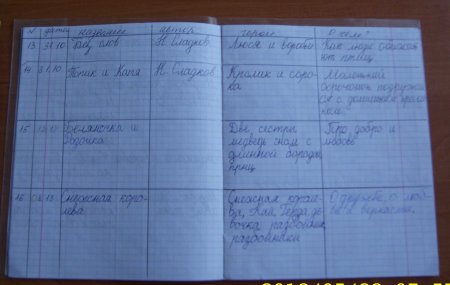 N дата название автор герои О чём?
13 31.10 Без слов Н Сладков Люди и воробьи Как люди
нят птиц
14 31.10 Топик и Катя Н. Сладков Кролик и соро-
ка
Маленький
сорочонок подружился
с домашним
15 Белянчка и
Розочка
Две сестры
медведь гном с
длинной бородой
принц
Про добро и
любовь
16 Снежная коро-
лева
Снежная короле-
ва, Кай, Герда, де-
вочка разбойник,
разбойники
О дружбе, о люб-
ви и верности.